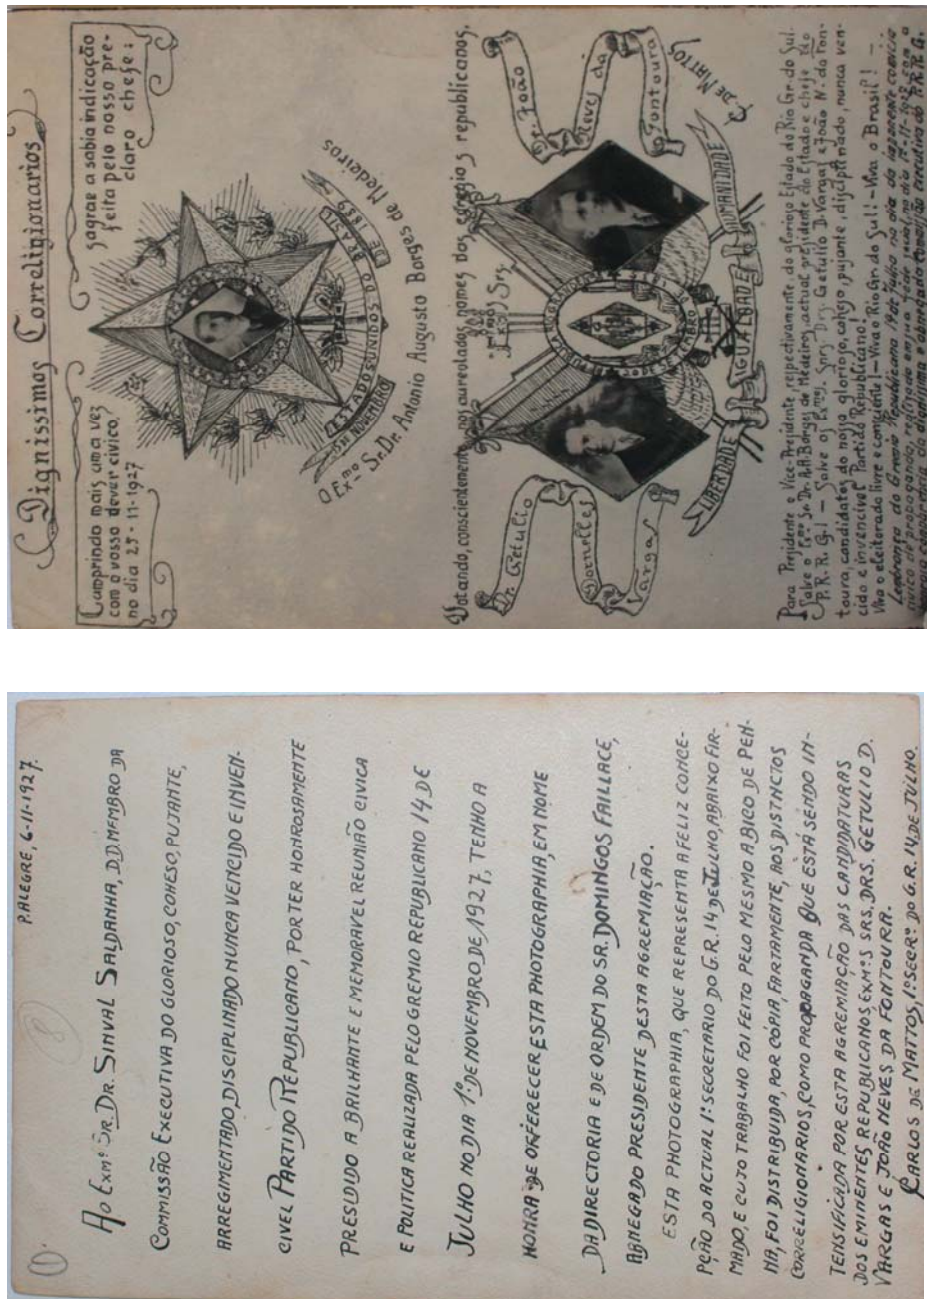 Dignissimos Correligionarios
Cumprindo mais uma vez
com o vosso dever civico,
no dia 25-11-1927
sagrae a sabia indicação
feita pelo nosso pre-
claro chefe:
ESTADOS UNIDOS DO BRASIL
15 NOVEMBRO DE 1889
O Ex-mo Sr. Dr. Antonio Augusto Borges de Medeiros
Votando, conscientemente, nos aureolados nomes dos egregios republicanos,
Exmos Srs.
Dr. Getulio
Dornelles
Vargas
Dr. João
Neves da
Fontoura
LIBERDADE IGUALDADE HUMANIDADE
C. DE MATTOS
Para Presidente e Vice-Presidente, respectivamente, do glorioso Estado do Rio Gr. do Sul.
Salve o Exmo Sr. Dr. A. A. Borges de Medeiros, actual presidente do Estado e chefe do
P. R. R. G.! - Salve os Exmos. Snrs. Drs. Getulio D. Vargas e João N. da Fon-
toura, candidatos do nosso glorioso, coheso, pujante, disciplinado, nunca ven-
cido e invencivel Partido Republicano!
Viva o eleitorado livre e consciente! - Viva o Rio Gr. do Sul! - Viva o Brasil! -
Lembrança do Gremio Republicano 14 de Julho no dia do imponente comicio
civico de propaganda, realizado em sua séde social, no dia 1º-11-1927, com a
honrosa da dignissima e abnegada Commissão Executiva do P.R.R.G.
(1)
8
P. ALEGRE, 6-11-1927.
AO EXMº SR. DR. SINVAL SALDANHA, D.D. MEMBRO DA
COMMISSÃO EXECUTIVA DO GLORIOSO, COHESO, PUJANTE,
ARREGIMENTADO, DISCIPLINADO NUNCA VENCIDO E INVEN-
CIVEL PARTIDO REPUBLICANO, POR TER HONROSAMENTE
PRESIDIDO A BRILHANTE E MEMORAVEL REUNIÃO CIVICA
E POLITICA REALIZADA PELO GREMIO REPUBLICANO 14 DE
JULHO NO DIA 1º DE NOVEMBRO DE 1927, TENHO A
HONRA DE OFFERECER ESTA PHOTOGRAPHIA, EM NOME
DA DIRECTORIA E DE ORDEM DO SR. DOMINGOS FAILLACE,
ABNEGADO PRESIDENTE DESTA AGREMIAÇÃO.
ESTA PHOTOGRAPHIA, QUE REPRESENTA A FELIZ CONCE-
PÇÃO DO ACTUAL 1º SECRETARIO DO G.R. 14 DE JULHO, ABAIXO FIR-
MADO, E CUJO TRABALHO FOI FEITO PELO MESMO A BICO DE PEN-
NA, FOI DISTRIBUIDA, POR CÓPIA, FARTAMENTE, AOS DISTINCTOS
CORRELIGIONARIOS, COMO PROPAGANDA QUE ESTÁ SENDO IN-
TENSIFICADA POR ESTA AGREMIAÇÃO DAS CANDIDATURAS
DOS EMINENTES REPUBLICANOS, EXMºS SRS. DRS. GETULIO D.
VARGAS E JOÃO NEVES DA FONTOURA.
CARLOS DE MATTOS, 1º SECRº DO G.R. 14 DE JULHO.